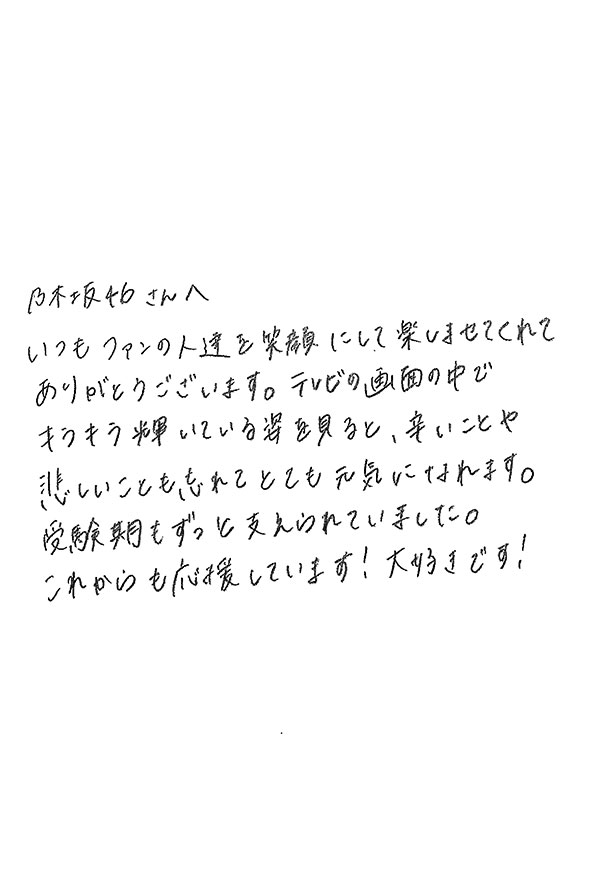 乃木坂46さんへ
いつもファンの人達を笑顔にして楽しませてくれて
ありがとうございます。テレビの画面の中で
キラキラ輝いている姿を見ると、辛いことや
悲しいことも忘れてとても元気になれます。
受験期もずっと支えられていました。
これからも応援しています！大好きです！